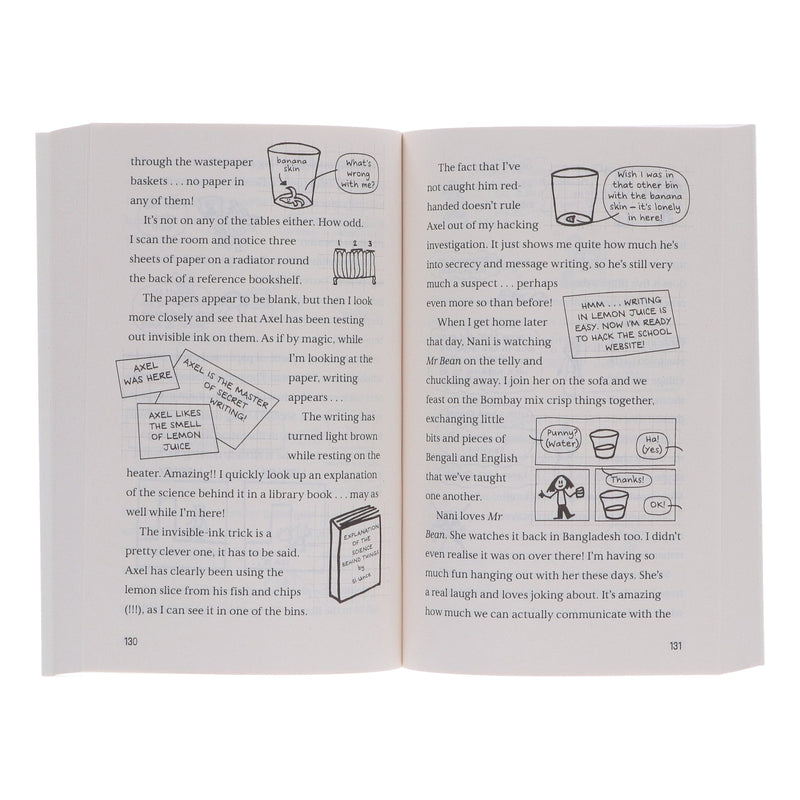 through the wastepaper
baskets . . . no paper in
any of them!
banana
skin
What's
wrong
with me?
It's not on any of the tables either. How odd.
I scan the room and notice three
sheets of paper on a radiator round
the back of a reference bookshelf.
1 2 3
The papers appear to be blank, but then I look
more closely and see that Axel has been testing
out invisible ink on them. As if by magic, while
I'm looking at the
paper, writing
appears . . .
The writing has
turned light brown
while resting on the
AXEL
WAS HERE
AXEL IS THE MASTER
OF SECRET
WRITING!
AXEL LIKES
THE SMELL
OF LEMON
JUICE
heater. Amazing!! I quickly look up an explanation
of the science behind it in a library book . . . may as
well while I'm here!
The invisible-ink trick is a
pretty clever one, it has to be said.
Axel has clearly been using the
lemon slice from his fish and chips
(!!!), as I can see it in one of the bins.
EXPLANATION
OF THE
SCIENCE
BEHIND THINGS
by
Si Ence
130
The fact that I've
not caught him red-
handed doesn't rule
Axel out of my hacking
Wish I was in
that other bin
with the banana
skin – it's lonely
in here!
investigation. It just shows me quite how much he's
into secrecy and message writing, so he's still very
much a suspect . . . perhaps
even more so than before!
HMM . . . WRITING
IN LEMON JUICE IS
EASY. NOW I'M READY
TO HACK THE SCHOOL
WEBSITE!
When I get home later
that day, Nani is watching
Mr Bean on the telly and
chuckling away. I join her on the sofa and we
feast on the Bombay mix crisp things together,
exchanging little
bits and pieces of
Bengali and English
that we've taught
one another.
Punny?
(Water)
Ha!
(yes)
Thanks!
OK!
Nani loves Mr
Bean. She watches it back in Bangladesh too. I didn't
even realise it was on over there! I'm having so
much fun hanging out with her these days. She's
a real laugh and loves joking about. It's amazing
how much we can actually communicate with the
131